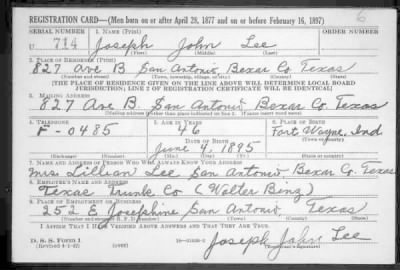 REGISTRATION CARD—(Men born on or after April 28, 1877 and on or before February 16, 1897)
6
SERIAL NUMBER 1. NAME (Print) ORDER NUMBER
U 714 Joseph John Lee
(First) (Middle) (Last)
2. PLACE OF RESIDENCE (Print)
827 Ave B San Antonio Bexar Co Texas
(Number and street) (Town, township, village, or city) (County) (State)
[THE PLACE OF RESIDENCE GIVEN ON THE LINE ABOVE WILL DETERMINE LOCAL BOARD
JURISDICTION; LINE 2 OF REGISTRATION CERTIFICATE WILL BE IDENTICAL]
3. MAILING ADDRESS
827 Ave B. San Antonio Bexar Co. Texas
[Mailing address if other than place indicated on line 2. If same insert word same]
4. TELEPHONE 5. AGE IN YEARS 6. PLACE OF BIRTH
F-0485 46 Fort Wayne, Ind
DATE OF BIRTH
June 4, 1895
(Exchange) (Number) (Mo.) (Day) (Yr.) (State or country)
7. NAME AND ADDRESS OF PERSON WHO WILL ALWAYS KNOW YOUR ADDRESS
Mrs Lillian Lee San Antonio Bexar Co. Texas
8. EMPLOYER'S NAME AND ADDRESS
Texas Trunk Co (Walter Binz)
9. PLACE OF EMPLOYMENT OR BUSINESS
252 E Josephine San Antonio Texas
(Number and street or R. F. D. number) (Town) (County) (State)
I AFFIRM THAT I HAVE VERIFIED ABOVE ANSWERS AND THAT THEY ARE TRUE.
D. S. S. Form 1
(Revised 4-1-42) (over)
Joseph John Lee